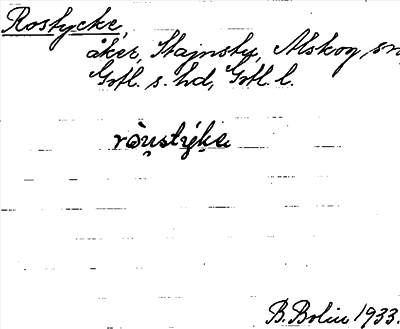 Rostycke,
åker, Stajnstu, Alskog sn,
Gotl. s. hd, Gotl. l.
ròu̯stýk̬e
B. Bolin 1933.